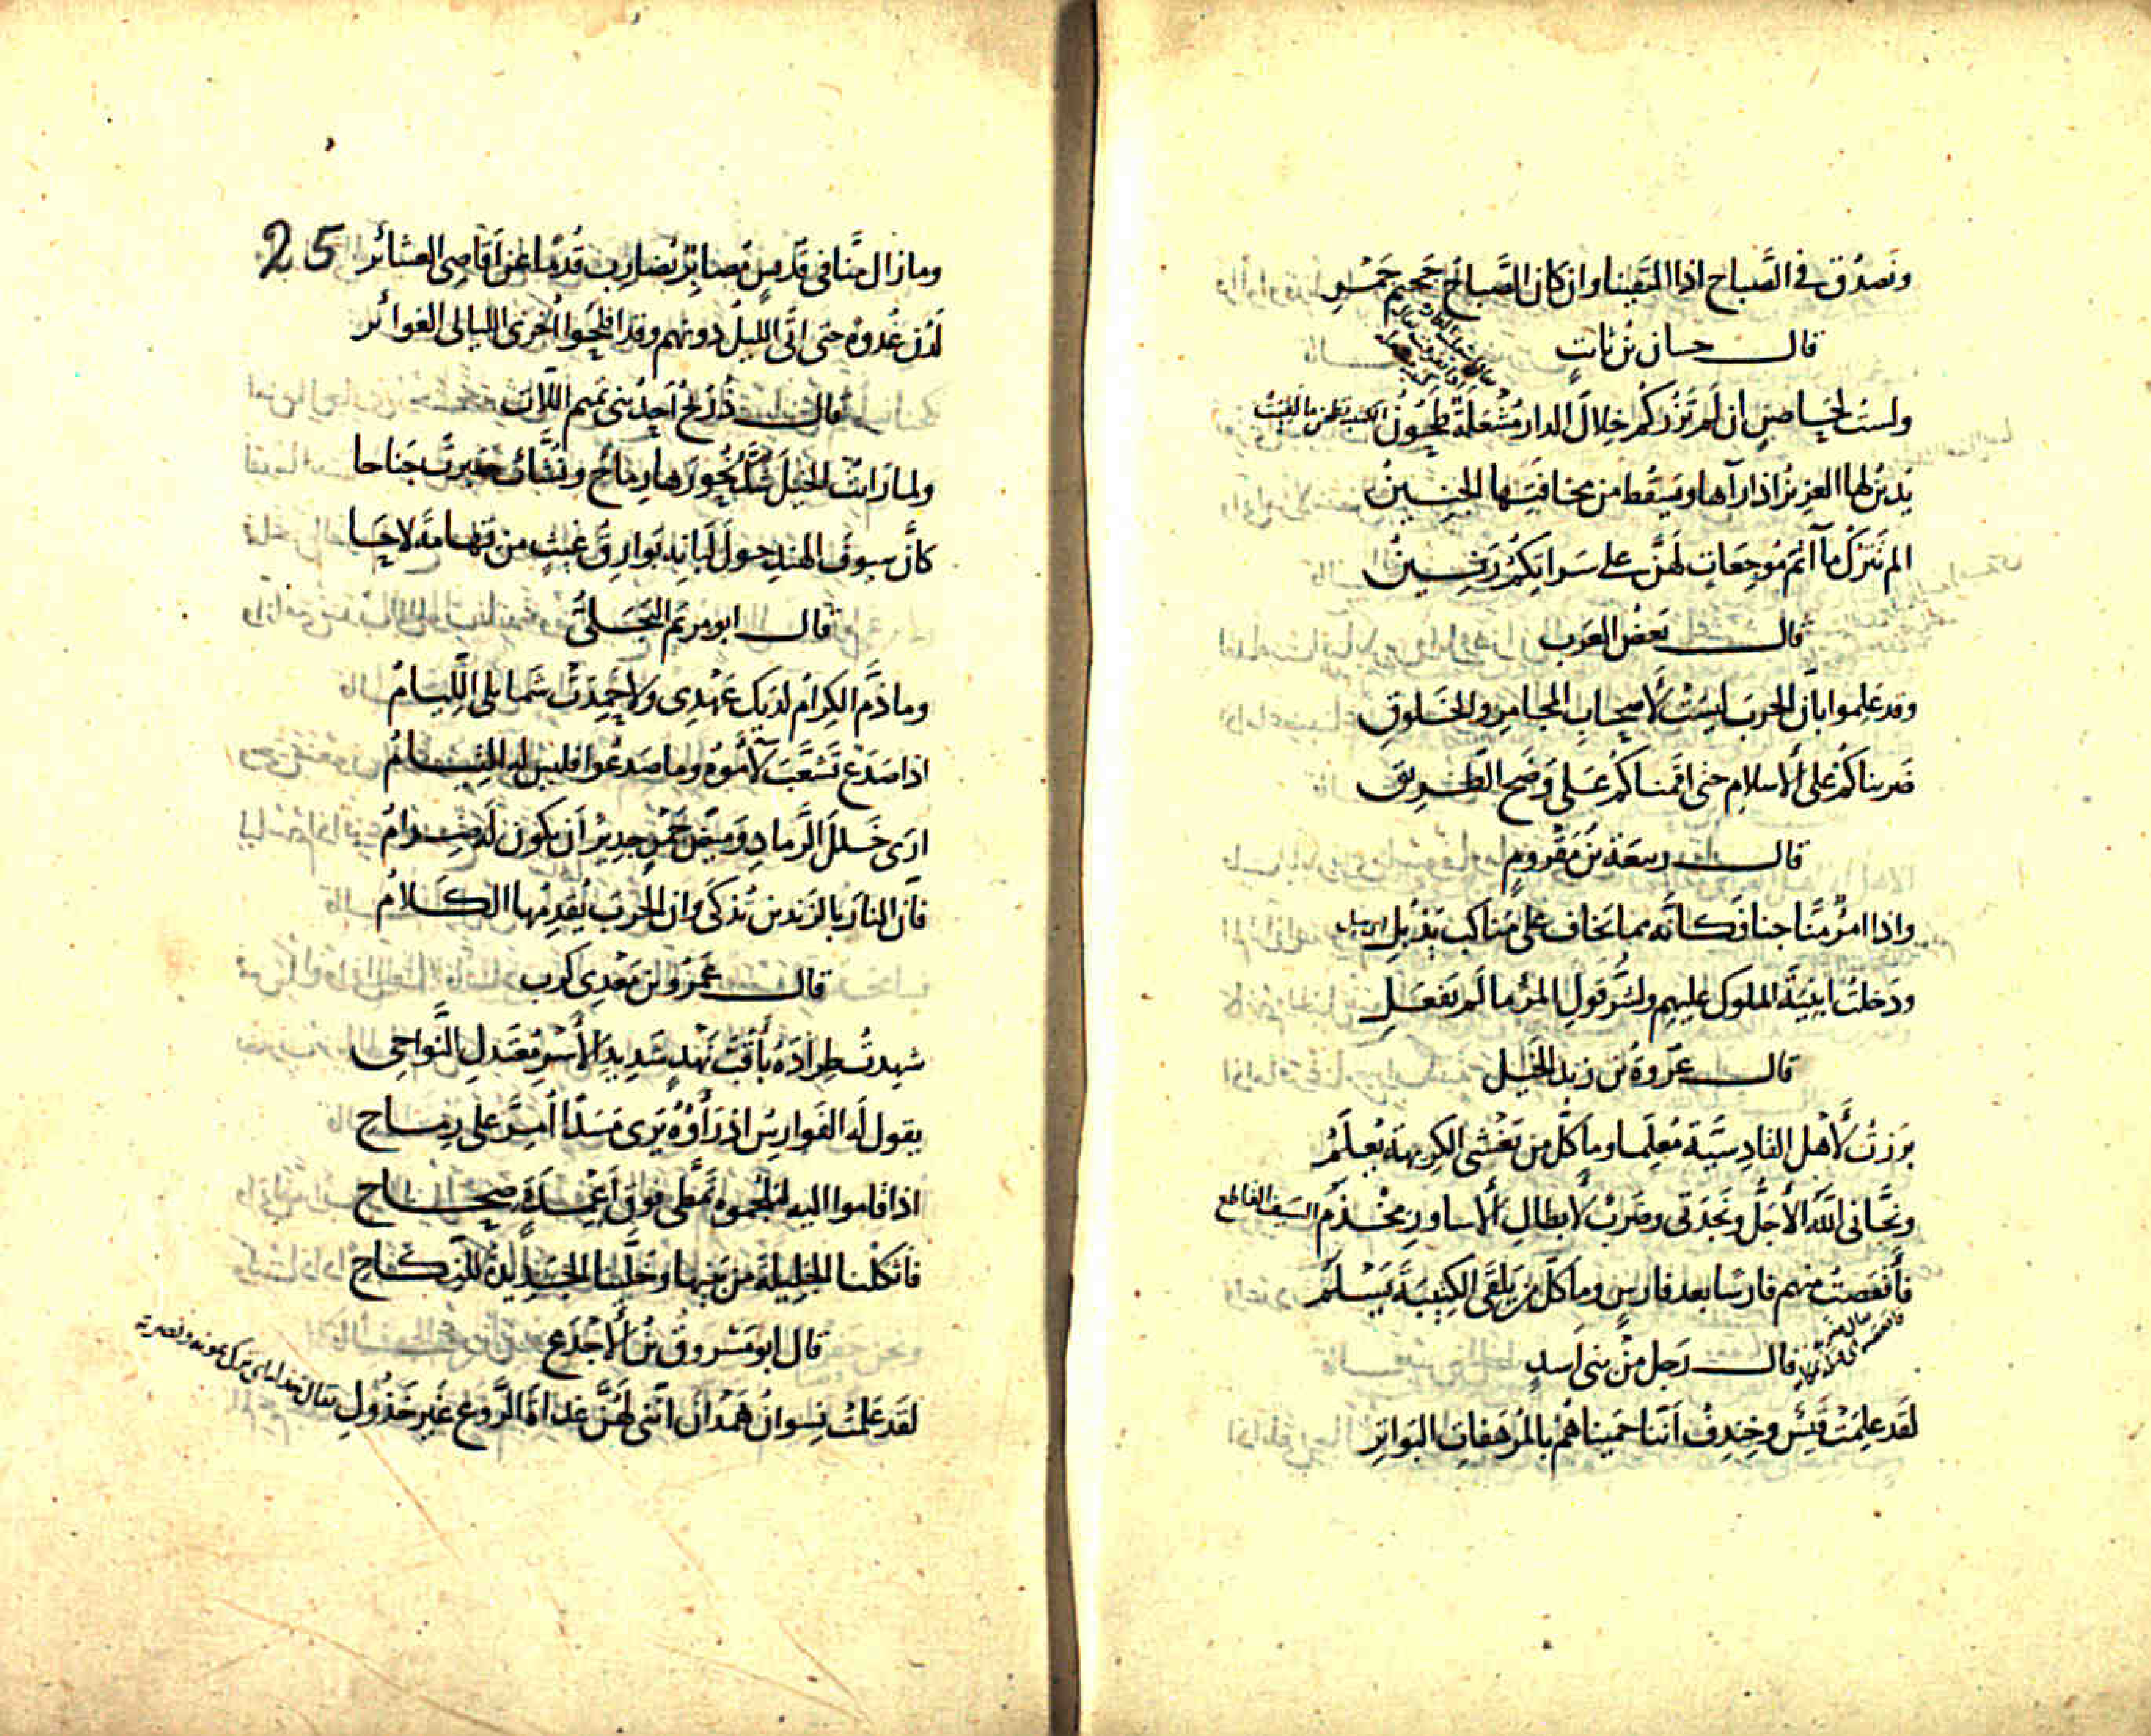 ونصدق في الصباح اذا التقينا وان كان الصباح جحيم جمر
قال حسان بن ثابت
ولست لحاصن ان لم تزركم خلال الدار مشعلة طحون
يدين لها العزيز اذا رآها ويسقط من مخافتها الجنين
الم نترك مآتم موجعات لهن على سراتكم رنين
قال بعض العرب
وقد علموا بان الحرب ليست لأصحاب المجامر والخلوق
ضربناكم على الاسلام حتى اقمناكم على وضح الطريق
قال ربيعة بن مقروم
واذا امرؤ منا جنا فكانه مما يخاف على مناكب يذبل
ودخلت ابنية الملوك عليهم ولشر قول المرء ما لم يفعل
قال عروة بن زيد الخيل
برزت لأهل القادسية معلما وما كل من يغشى الكريهة يعلم
ونجاني الله الأجل ونجدتي وضرب لابطال الاساور مخذم السيف القاطع
فأقعصت منهم فارسا بعد فارس وما كل من يلقى الكتيبة يسلم
قال رجل من بني اسد
لقد علمت قيس وخندف اننا حميناهم بالمرهفات البواتر
25
وما زال منا في قديس مصابر يضارب قدما عن اقاصي العشائر
لدن غدوة حتى اتى الليل دونهم وقد افلجوا اخرى الليالي الغوائر
قال ذريح احد بني تيم اللات
ولما رايت الخيل شك نحورها رماح ونشاب صبرت جناحا
كأن سيوف الهند حول لبانه بوارق غيث من تهامة لاحا
قال ابو مريم البجلي
وما ذم الكرام لديك عهدي ولا حمدت شمايلي الليام
اذا صدع تشعب لأموه وما صدعوا فليس له التيام
ارى خلل الرماد وميض جمر جدير أن يكون له ضرام
فان النار بالزندين تذكى وان الحرب يقدمها الكلام
قال عمرو بن معدي كرب
شهدت طراده بأقب نهد شديد الأسر معتدل النواحي
يقول له الفوارس اذ رأوه يرى مسدا أمر على رماح
اذا قاموا اليه ليلجموه تمطى فوق اعمدة صحاح
فاثكلنا الحليلة من بنيها وخلينا الجديدة للنكاح
قال ابو مسروق بن الأجدع
لقد علمت نسوان همدان انني لهن غداة الروع غير خذول يقال خذله اي ترك عونه ونصرته